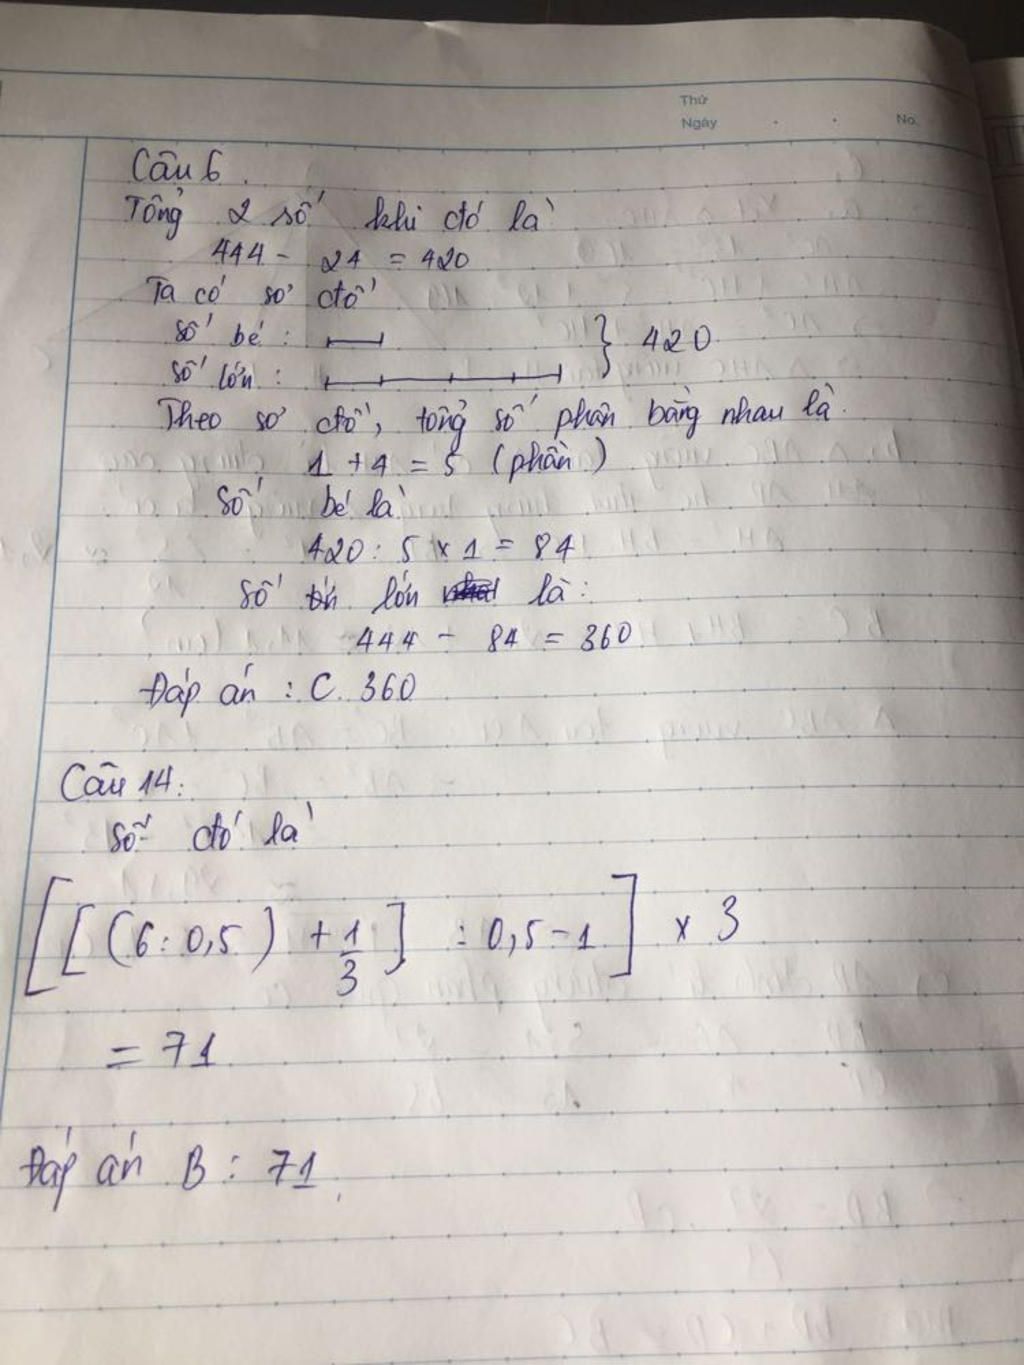 Thứ
Ngày
No.
Câu 6
Tổng 2 số khi đó là
444 - 24 = 420
Ta có sơ đồ
số bé :
} 420
số lớn :
Theo sơ đồ, tổng số phần bằng nhau là.
1 + 4 = 5 (phần)
Số bé là
420 : 5 x 1 = 84
Số lớn là :
444 - 84 = 360
Đáp án : C. 360
Câu 14:
Số đó là
[[(6 : 0,5) + 1/3] : 0,5 - 1] x 3
= 71
Đáp án B : 71.